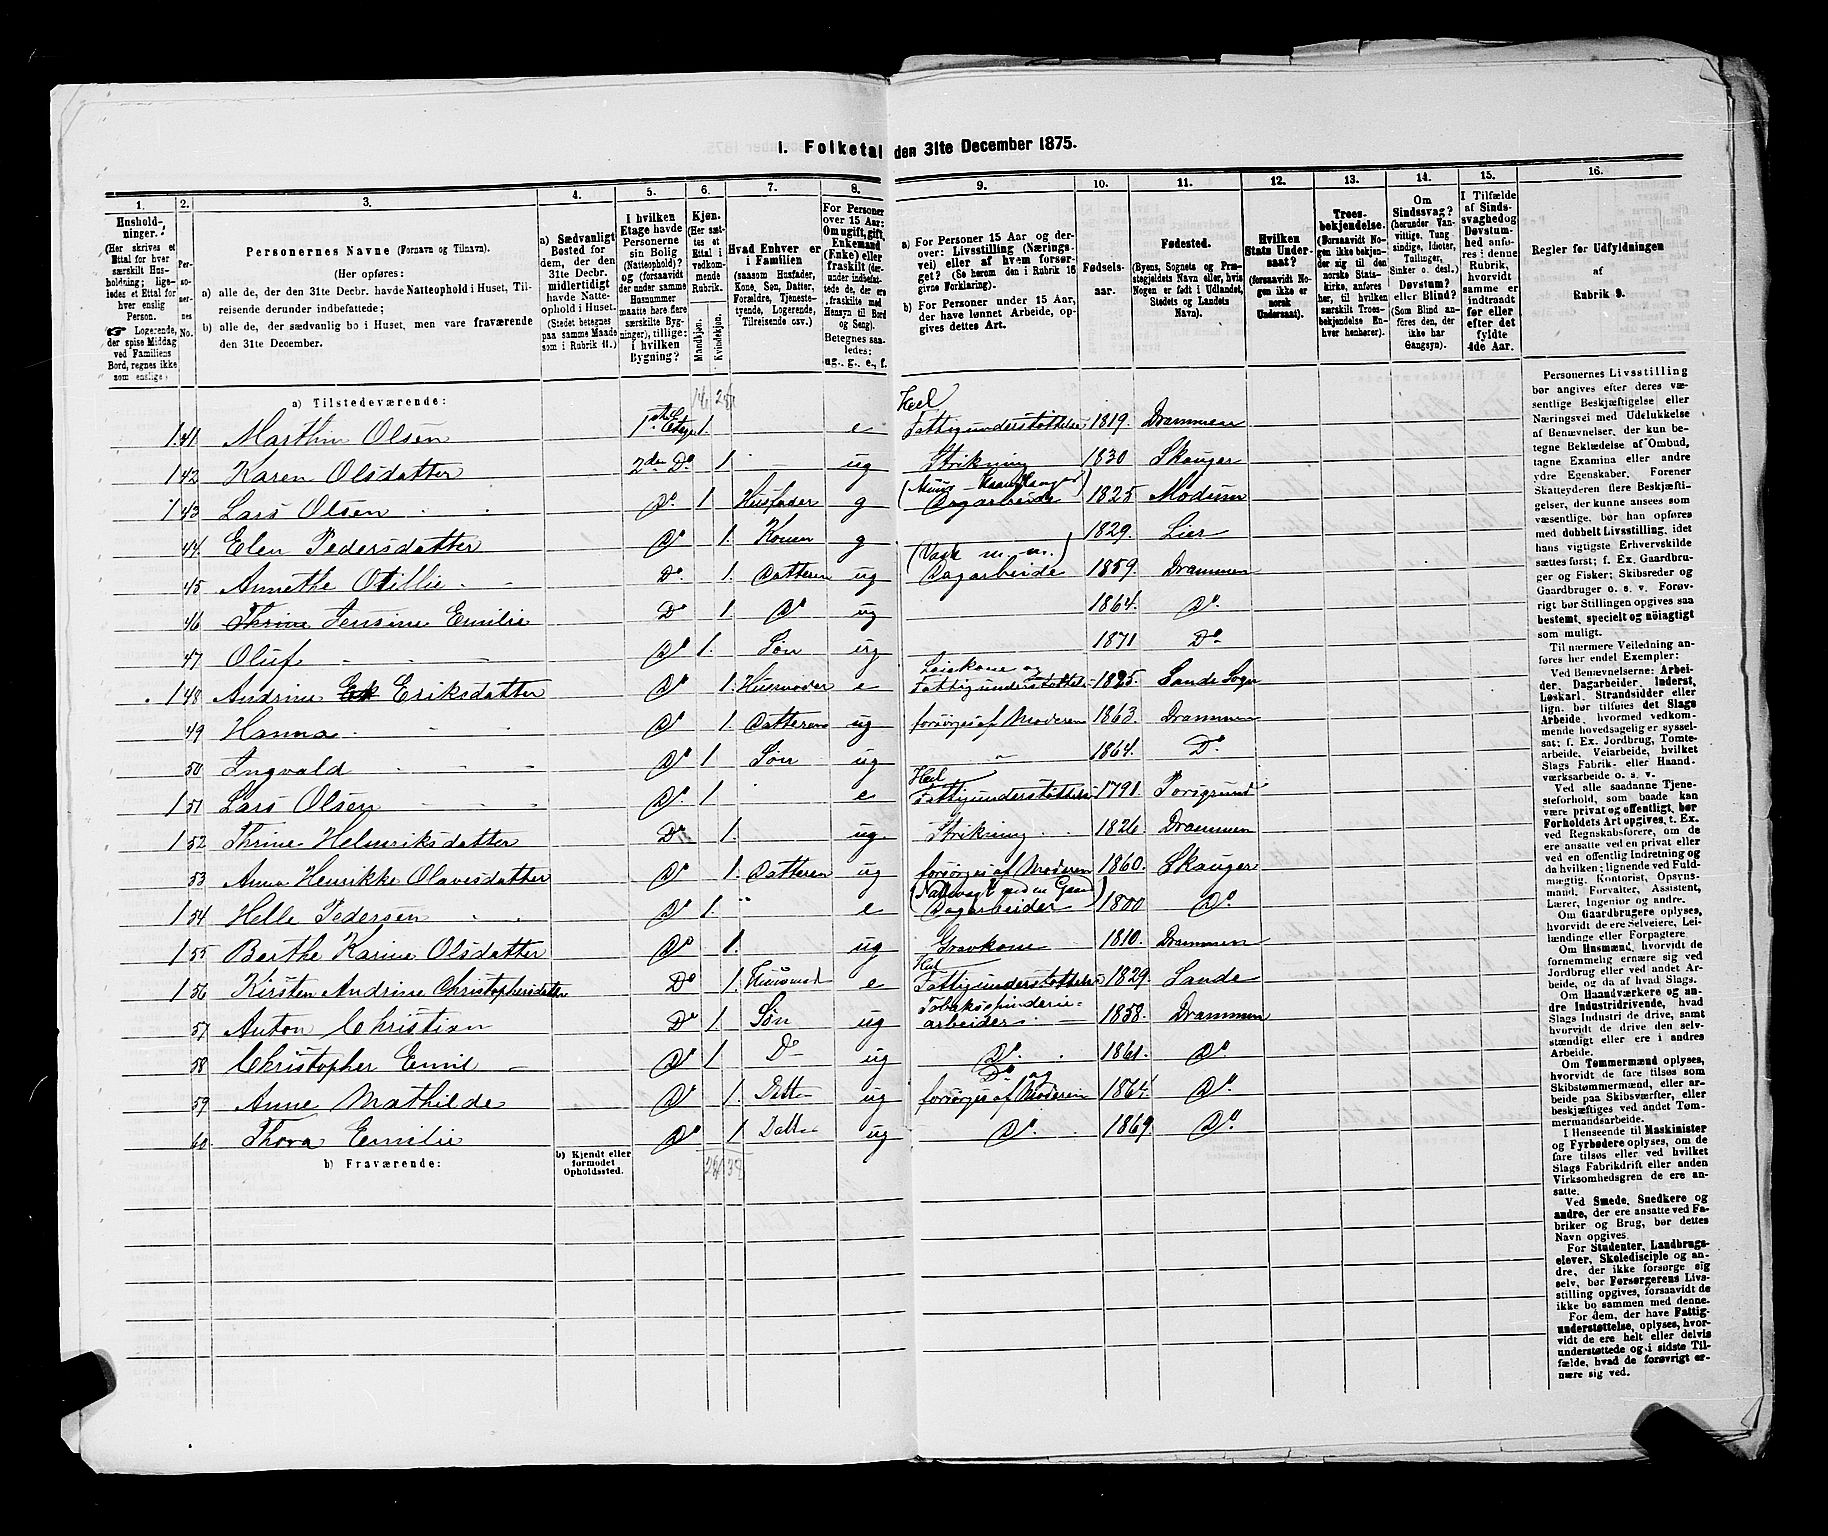 I. Folketal den 31te December 1875.
1. 2. 3. 4. 5. 6. 7. 8. 9. 10. 11. 12. 13. 14. 15. 16.
Hushold-
ninger.
(Her skrives et
Ettal for hver
særskilt Hus-
holdning; lige-
ledes et Ettal for
hver enslig
Person.
☞ Logerende,
der spise Middag
ved Familiens
Bord, regnes ikke
som enslige.)
Per-
so-
ner-
nes
No.
Personernes Navne (Fornavn og Tilnavn).
(Her opføres:
a) alle de, der den 31te Decbr. havde Natteophold i Huset, Til-
reisende derunder indbefattede;
b) alle de, der sædvanlig bo i Huset, men vare fraværende
den 31te December.
a) Sædvanligt
Bosted for
dem, der den
31te Decbr.
midlertidigt
havde Natte-
ophold i Huset.
(Stedet betegnes
paa samme Maade
som i Rubrik 11.)
I hvilken
Etage havde
Personerne
sin Bolig
(Natteophold)?
og (forsaavidt
der under samme
Husnummer
maatte høre flere
særskilte Byg-
ninger), tillige:
i hvilken
Bygning?
Kjøn.
(Her sæt-
tes et
Ettal i
vedkom-
mende
Rubrik.
Mandkjøn.
Kvindekjøn.
Hvad Enhver er
i Familien
(saasom Husfader,
Kone, Søn, Datter,
Forældre, Tjeneste-
tyende, Logerende,
Tilreisende osv.)
For Personer
over 15 Aar:
Om ugift, gift,
Enkemand
(Enke) eller
fraskilt (der-
under indbefat-
tede de, der ere
fraskilte med
Hensyn til Bord
og Seng).
Betegnes saa-
ledes:
ug., g., e., f.
a) For Personer 15 Aar og der-
over: Livsstilling (Nærings-
vei) eller af hvem forsør-
get? (Se herom den i Rubrik 16
givne Forklaring).
b) For Personer under 15 Aar,
der have lønnet Arbeide, op-
gives dettes Art.
Fødsels-
aar.
Fødested.
(Byens, Sognets og Præ-
stegjeldets Navn eller, hvis
Nogen er født i Udlandet,
Stedets og Landets
Navn).
Hvilken
Stats Under-
saat?
(forsaavidt No-
gen ikke er
norsk
Undersaat).
Troes-
bekjendelse.
(Forsaavidt No-
gen ikke bekjen-
der sig til den
norske Stats-
kirke, anføres
her, til hvilket
særskilt Troes-
bekjendelse En-
hver henhører).
Om
Sindssvag?
(herunder Van-
vittige, Tung
sindige, Idioter,
Tullinger,
Sinker o. desl.)
Døvstum?
eller Blind?
(Som Blind an-
føres den, der
ikke har
Gangsyn).
I Tilfælde
af Sinds-
svaghed og
Døvstum-
hed anfø-
res i denne
Rubrik,
hvorvidt
samme er
indtraadt
før eller
efter det
fyldte
4de Aar.
Regler for Udfyldningen
af
Rubrik 9.
a) Tilstedeværende:
1 41 Marthin Olsen 1ste Etage 1. e Hel Fattigunderstøttelse 1819. Drammen
1 42 Karen Olsdatter 2den Do 1. ug Strikning 1830 Skauger
1 43 Lars Olsen Do. 1 Husfader g Dagarbeide 1825 Modum
44 Elen Pedersdatter Do 1. Konen g 1829. Lier
45 Annethe Otillie Do. 1. Datteren ug (Vask m. m.) Dagarbeide 1859. Drammen
46 Thrine Jensine Emilie Do 1. Do ug 1864. Do.
47 Oluf Do 1. Søn ug 1871 Do
1 48 Andrine Eriksdatter Do 1. Husmoder e Leiekone og Fattigunderstøttelse 1825. Sande Sogn
49 Hanna Do 1. Datteren ug forsørges af Moderen 1863. Drammen
50 Ingvald Do 1. Søn ug " 1864. Do.
1 51 Lars Olsen Do. 1 e Hel Fattigunderstøttelse 1791. Porsgrund
1 52 Thrine Helmriksdatter Do 1. ug. Strikning 1826 Drammen
53 Anna Henrikke Olavesdatter Do 1. Datteren ug forsørges af Moderen 1860. Skauger
1 54 Helle Pedersen Do 1. " e Dagarbeider 1800 Do.
1 55 Berthe Karine Olsdatter Do 1. ug Gravkone 1810. Drammen
1 56 Kirsten Andrine Christophersdatter Do 1. Husmod e Hel Fattigunderstøttelse 1829. Sande
57 Anton Christian Do 1. Søn ug Tobaksspinderie- arbeider 1858. Drammen
58 Christopher Emil Do 1 Do ug Do. 1861. Do
59 Anne Mathilde Do 1. Datt ug Do og forsørges af Moderen 1864. Do.
60 Thora Emilie Do 1. Datt ug Do. 1869. Do.
b) Fraværende:
b) Kjendt eller
formodet
Opholdssted.
Personernes Livsstilling
bør angives efter deres væ-
sentlige Beskjæftigelse eller
Næringsvei med Udelukkelse
af Benævnelser, der kun be-
tegne Beklædelse af Ombud,
tagne Examina eller andre
ydre Egenskaber. Forener
Skatteyderen flere Beskjæfti-
gelser, der kunne ansees som
væsentlige, bør han opføres
med dobbelt Livsstilling, idet
hans vigtigste Erhvervskilde
sættes først; f. Ex. Gaardbru-
ger og Fisker; Skibsreder og
Gaardbruger o. s. v. Forøv-
rigt bør Stillingen opgives saa
bestemt, specielt og nøiagtigt
som muligt.
Til nærmere Veiledning an-
føres her endel Exempler:
Ved Benævnelserne: Arbei-
der, Dagarbeider, Inderst,
Løskarl, Strandsidder eller
lign. bør tilføies det Slags
Arbeide, hvormed vedkom-
mende hovedsagelig er syssel-
sat; f. Ex. Jordbrug, Tomte-
arbeide, Veiarbeide, hvilket
Slags Fabrik- eller Haand-
værksarbeide o. s. v.
Ved alle saadanne Tjene-
steforhold, som baade kan
være privat og offentligt, bør
Forholdets Art opgives, t. Ex.
ved Regnskabsførere, om de
ere ansatte ved en privat eller
ved en offentlig Indretning og
da hvilken; lignende ved Fuld-
mægtig, Kontorist, Opsyns-
mand, Forvalter, Assistent,
Lærer, Ingeniør og andre.
Om Gaardbrugere oplyses,
hvorvidt de ere Selveiere, Lei-
lændinge eller Forpagtere.
Om Husmænd, hvorvidt de
fornemmelig ernære sig ved
Jordbrug eller ved andet Ar-
beide, og da af hvad Slags.
Om Haandværkere og an-
dre Industridrivende, hvad
Slags Industri de drive, samt
hvorvidt de drive den selv-
stændigt eller ere i andres
Arbeide.
Om Tømmermænd oplyses,
hvorvidt de fare tilsøs som
Skibstømmermænd, eller ar-
beide paa Skibsværfter, eller
beskjæftiges ved andet Tøm-
mermandsarbeide.
I Henseende til Maskinister
og Fyrbødere oplyses, om de
fare tilsøs eller ved hvilket
Slags Fabrikdrift eller anden
Virksomhedsgren de ere an-
satte.
Ved Smede, Snedkere og
andre, der ere ansatte ved Fa-
briker og Brug, bør dettes
Navn opgives.
For Studenter, Landbrugs-
elever, Skoledisciple og an-
dre, der ikke forsørge sig
selv, bør Forsørgerens Livs-
stilling opgives, forsaavidt de
ikke bo sammen med denne.
For dem, der have Fattig-
understøttelse, oplyses, hvor-
vidt de ere helt eller delvis
understøttede og i sidste Til-
fælde, hvad de forøvrigt er-
nære sig ved.